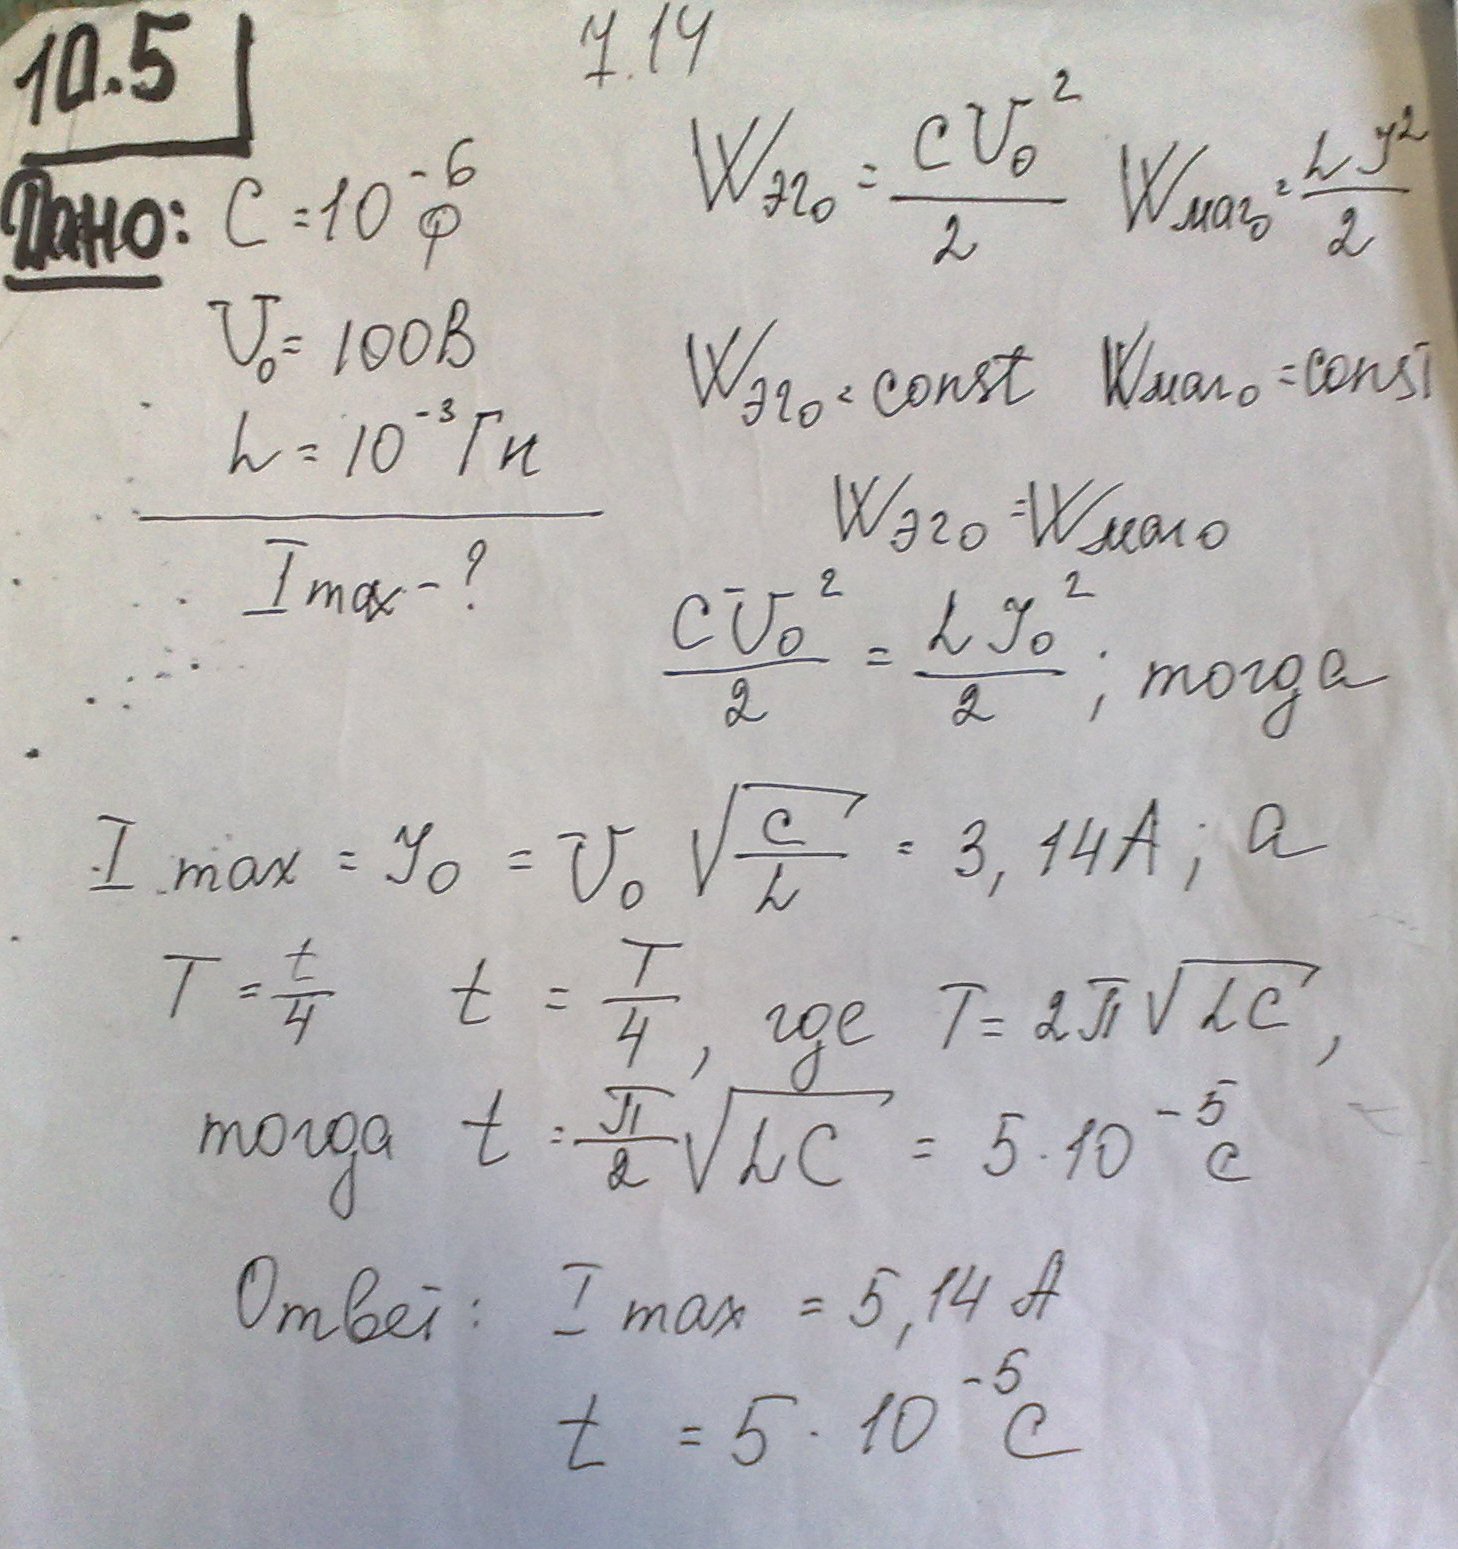 10.5
7.14
Дано: C = 10⁻⁶ Ф
U₀ = 100В
L = 10⁻³ Гн
I max - ?
Wэл₀ = CU₀²/2 Wмаг₀ = LJ²/2
Wэл₀ = const Wмаг₀ = const
Wэл₀ = Wмаг₀
CU₀²/2 = LJ₀²/2 ; тогда
I max = J₀ = U₀ √(C/L) = 3,14А ; а
T = t/4 t = T/4 , где T = 2π√LC ,
тогда t = π/2 √LC = 5·10⁻⁵ с
Ответ: I max = 5,14 А
t = 5·10⁻⁵ с